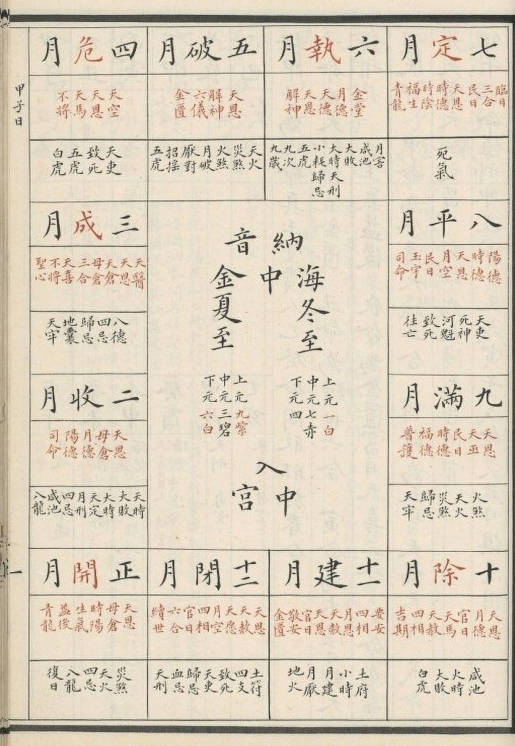 甲子日
七定月
臨日 三合 民日 天恩 時德 時陰 福生 青龍
死氣
六執月
金堂 月德 天德 天恩 解神
月害 咸池 大敗 大時 天刑 小耗 歸忌 五虎 九次
五破月
天恩 解神 六儀 金匱
天火 災煞 火煞 月破 厭對 招搖 五虎
四危月
天空 天恩 天馬 不將
天吏 致死 五虎 白虎
八平月
陽德 時德 天恩 月空 民日 玉宇 司命
天吏 死神 河魁 致死 往亡
三成月
天醫 天恩 天倉 母倉 三合 天喜 不將 聖心
八德 四忌 歸忌 地囊 天牢
納音
海中金
冬至
上元一白
中元七赤
下元四
夏至
上元九紫
中元三碧
下元六白
入中宮
九滿月
天恩 天巫 民日 時德 福德 普護
火煞 天火 災煞 歸忌 天牢
二收月
天恩 母倉 月德 陽德 司命
天時 大敗 大時 天定 月刑 四忌 咸池 八龍
十除月
天恩 月德 官日 天馬 天赦 四相 吉期
咸池 火時 大敗 白虎
十一建月
四相 月恩 天赦 天恩 官日 敬安 金匱
土府 小時 月建 月厭 地火
十二閉月
天恩 天赦 天恩 月空 四相 官日 六合 續世
土符 四支 致死 天吏 歸忌 血忌 天刑
正開月
天恩 母倉 時陽 生氣 益後 青龍
災煞 天火 四忌 八龍 復日
一